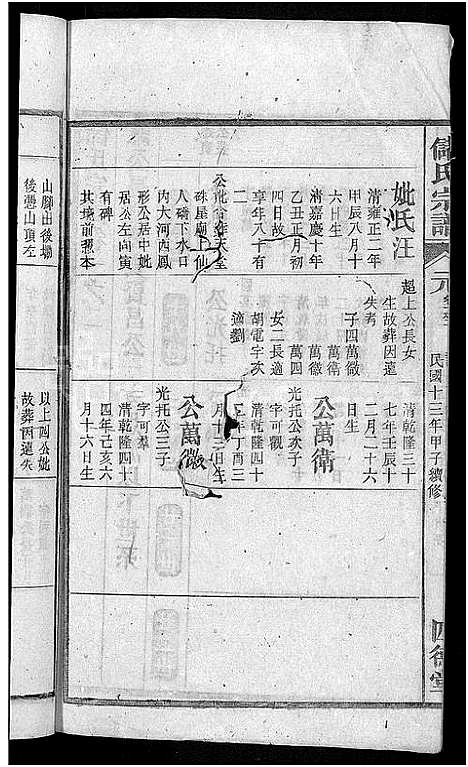 氏宗譜
民國十三年甲子續修
堂
妣氏汪
清雍正二年
甲辰八月十
六日生
清嘉慶十年
乙丑正月初
四日故
享年八十有
二
公妣合葬天堂
硃星廟上仙
人磅下水口
內大河西鳳
形公居中妣
居公左向寅
有碑
共墳前照本
超上公長女
生故葬因遠
失考
子四萬徽
萬衛
萬徵
萬四
女二長適
胡電字次
適劉
清乾隆三十
七年壬辰十
二月二十六
日生
公萬衛
光托公次子
字可觀
清乾隆四十
二年丁酉三
月十三日生
公萬徵
光托公三子
字可羣
清乾隆四十
四年己亥六
月十六日生
山腳出後塝
後憑山頂左
以上四公妣
故葬因遠失